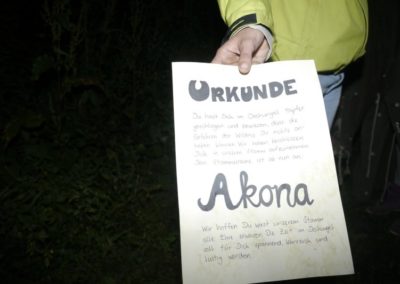 URKUNDE
Du hast Dich im Dschungel tapfer
geschlagen und bewiesen, dass die
Gefahren der Wildnis Du nichts an-
haben können. Wir haben beschlossen
Dich in unseren Stamm aufzunehmen.
Dein Stammesname ist ab nun an:
Akona
Wir hoffen Du wirst unserem Stamm
alle Ehre machen. Die Zeit im Dschungel
soll für Dich spannend, lehrreich und
lustig werden.